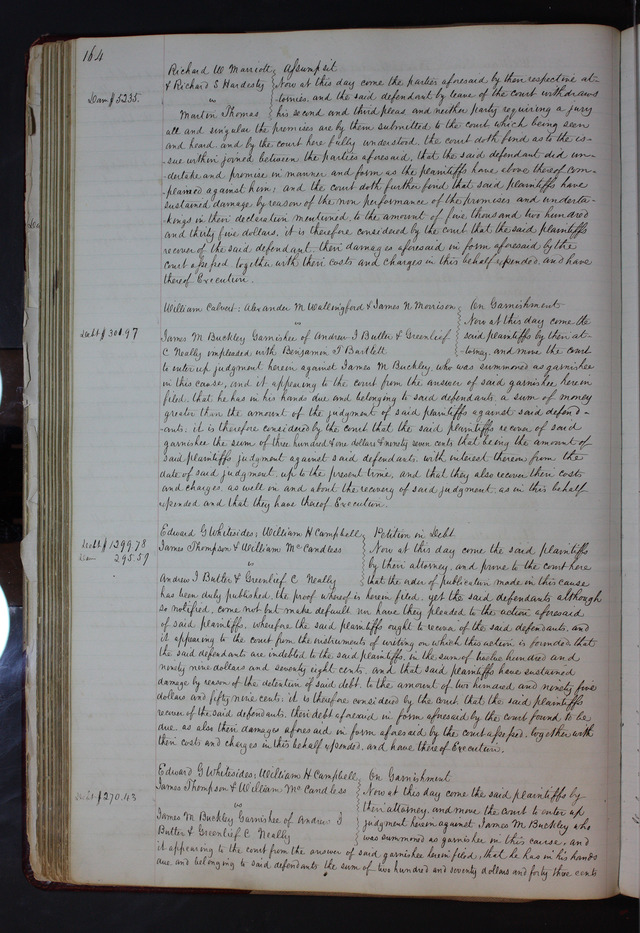 164
Richard W Marriott Assumpsit
& Richard S Hardesty Now at this day come the parties aforesaid by their respective at-
Dam $5235. vs tornies and the said defendant by leave of the court withdraws
Martin Thomas his second and third pleas and neither party requiring a jury
all and singular the premises are by them submitted to the court which being seen
and heard and by the court here fully understood the court doth find as to the is-
sue within joined between the parties aforesaid, that the said defendant did un-
dertake and promise in manner and form as the plaintiffs have above thereof com-
plained against him; and the court doth further find that said plaintiffs have
sustained damage by reason of the non performance of the promises and underta-
kings in their declaration mentioned to the amount of five thousand two hundred
and thirty five dollars. it is therefore considered by the court that the said plaintiffs
recover of the said defendant their damages aforesaid in form aforesaid by the
court assessed together with their costs and charges in this behalf expended and have
thereof Execution.
William Calvert; Alexander M Wallingford & James N Morrison On Garnishment
vs Now at this day come the
Debt $301.97 James M Buckley Garnishee of Andrew J Butler & Greenlief said plaintiffs by their at-
C Neally impleaded with Benjamin T Bartlett torney, and move the court
to enter up judgment herein against James M Buckley who was summoned as garnishee
in this cause, and it appearing to the court from the answer of said garnishee herein
filed, that he has in his hands due and belonging to said defendants a sum of money
greater than the amount of the judgment of said plaintiffs against said defend-
ants. it is therefore considered by the court that the said plaintiffs recover of said
garnishee the sum of three hundred & one dollars & ninety seven cents that being the amount of
said plaintiffs judgment against said defendants with interest thereon from the
date of said judgment up to the present time, and that they also recover their costs
and charges as well on and about the recovery of said judgment as in this behalf
expended and that they have thereof Execution.
Edward G Whitesides; William H Campbell Petition in Debt
Debt $1299.78 James Thompson & William McCandless Now at this day come the said plaintiffs
Dam 295.59 vs by their attorney, and prove to the court here
Andrew J Butler & Greenlief C Neally that the order of publication made in this cause
has been duly published the proof whereof is herein filed, yet the said defendants although
so notified, come not but make default nor have they pleaded to the action aforesaid
of said plaintiffs, wherefore the said plaintiffs ought to recover of the said defendants, and
it appearing to the court from the instruments of writing on which this action is founded that
the said defendants are indebted to the said plaintiffs in the sum of twelve hundred and
ninety nine dollars and seventy eight cents, and that said plaintiffs have sustained
damage by reason of the detention of said debt, to the amount of two hundred and ninety five
dollars and fifty nine cents; it is therefore considered by the court, that the said plaintiffs
recover of the said defendants their debt aforesaid in form aforesaid by the court found to be
due as also their damages aforesaid in form aforesaid by the court assessed, together with
their costs and charges in this behalf expended, and have thereof Execution.
Edward G Whitesides; William H Campbell On Garnishment
James Thompson & William McCandless Now at this day come the said plaintiffs by
Debt $270.43 vs their attorney, and move the court to enter up
James M Buckley Garnishee of Andrew J judgment herein against James M Buckley who
Butler & Greenlief C Neally was summoned as garnishee in this cause, and
it appearing to the court from the answer of said garnishee herein filed, that he has in his hands
due and belonging to said defendants the sum of two hundred and seventy dollars and forty three cents